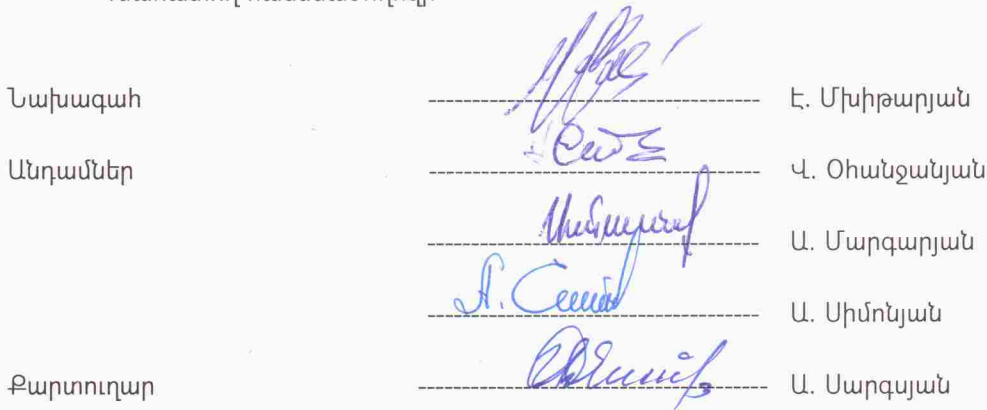 Նախագահ Է. Մխիթարյան
Անդամներ Վ. Օհանջանյան
Ա. Մարգարյան
Ա. Սիմոնյան
Քարտուղար Ա. Սարգսյան